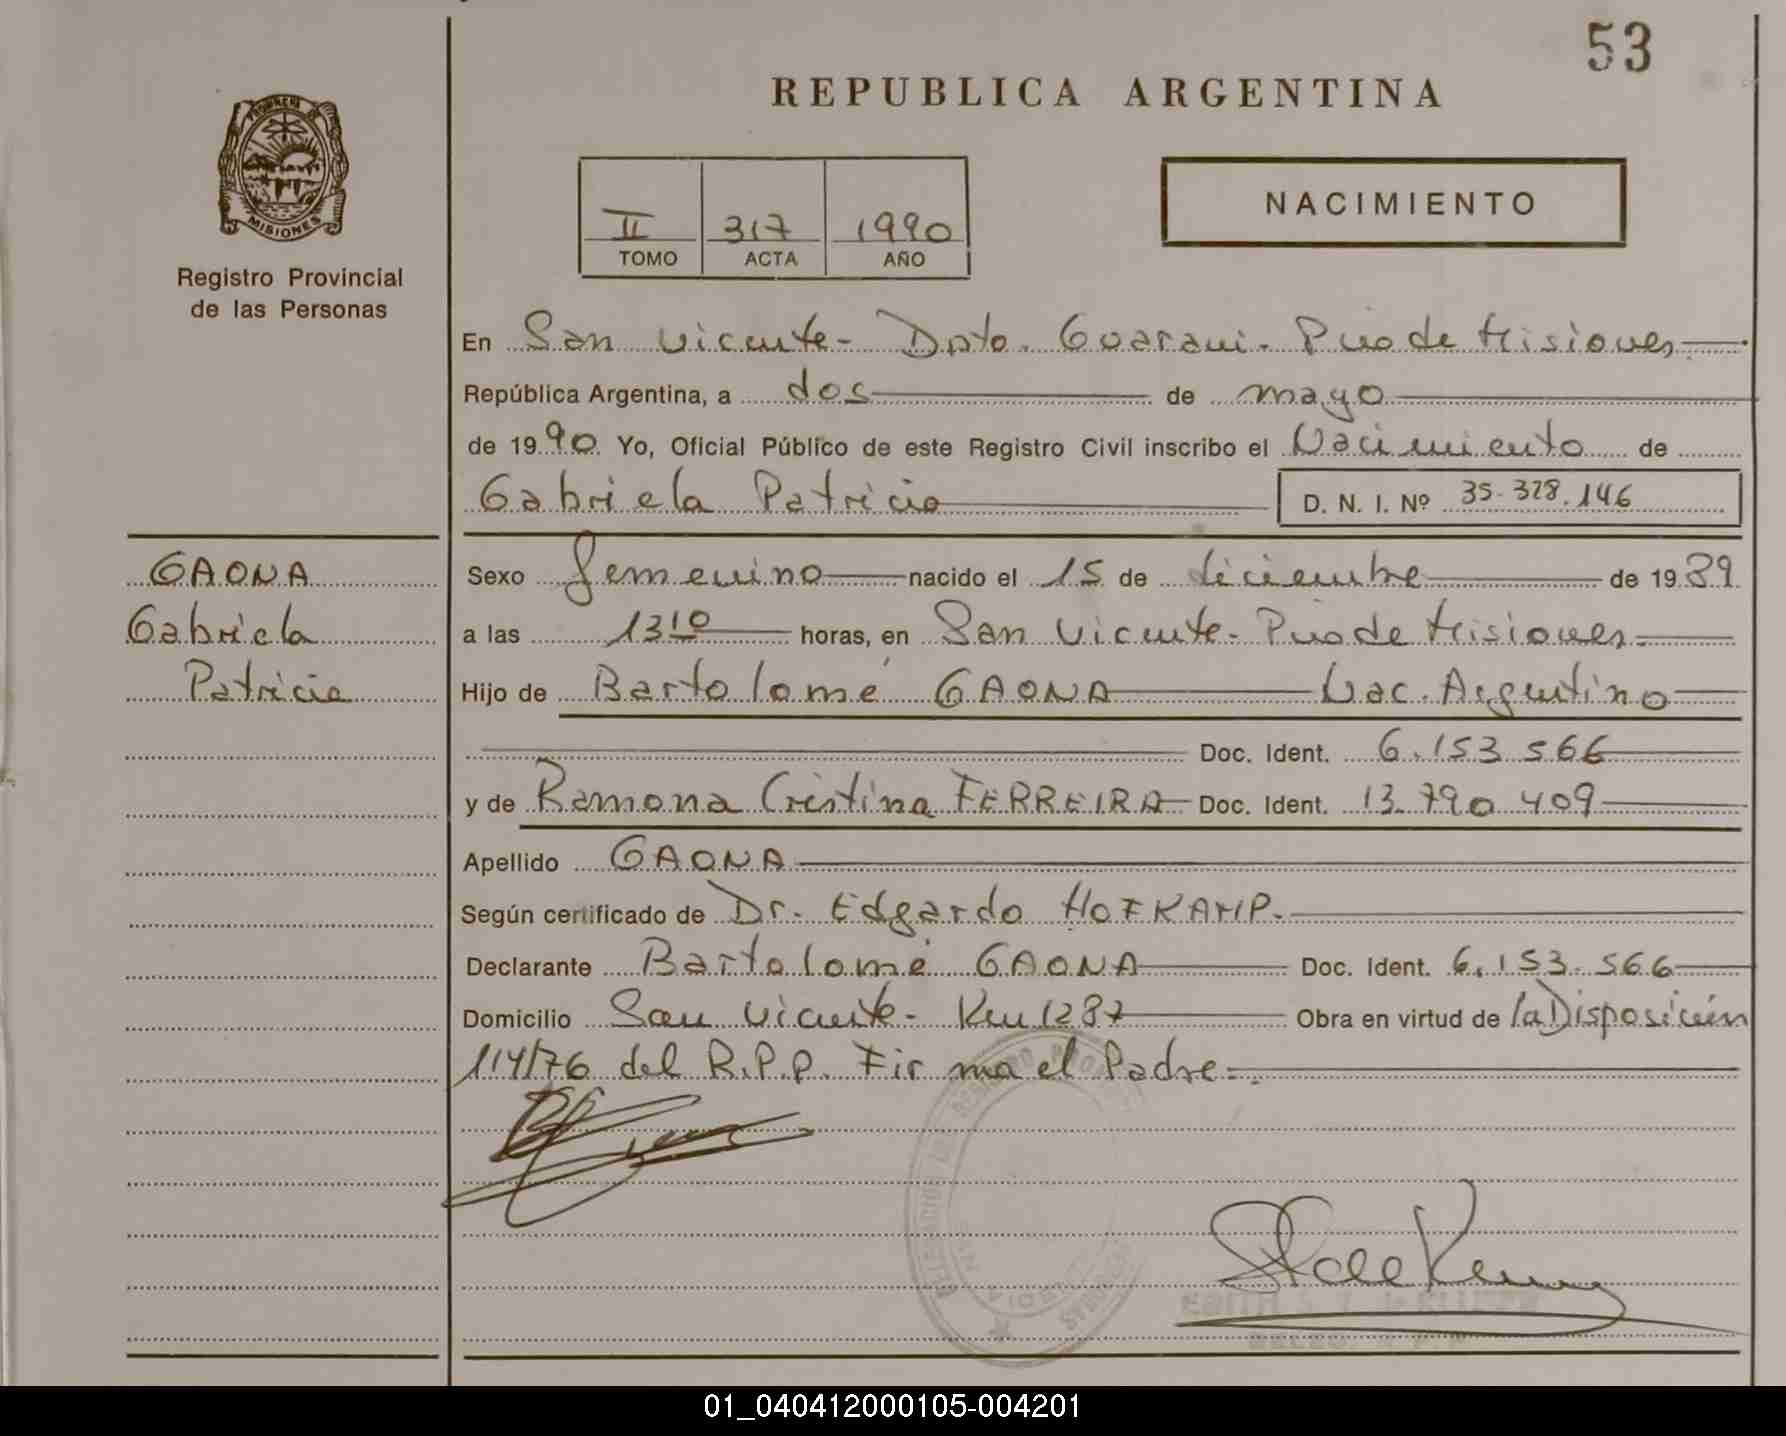 53
REPUBLICA ARGENTINA
PROVINCIA DE
MISIONES
Registro Provincial
de las Personas
II 317 1990
TOMO ACTA AÑO
NACIMIENTO
En San Vicente- Dpto. Guarani. Pcia de Misiones
República Argentina, a dos de mayo
de 1990 Yo, Oficial Público de este Registro Civil inscribo el Nacimiento de
Gabriela Patricia
D. N. I. Nº 35.328.146
GAONA
Gabriela
Patricia
Sexo femenino nacido el 15 de diciembre de 1989
a las 13 10 horas, en San Vicente- Pcia de Misiones.
Hijo de Bartolomé GAONA Nac. Argentino
Doc. Ident. 6.153.566
y de Ramona Cristina FERREIRA Doc. Ident. 13.790.409
Apellido GAONA
Según certificado de Dr. Edgardo HOFKAMP.
Declarante Bartolomé GAONA Doc. Ident. 6.153.566
Domicilio San Vicente- Km 1287 Obra en virtud de la Disposición
114/76 del R.P.P. Firma el Padre.
01_040412000105-004201